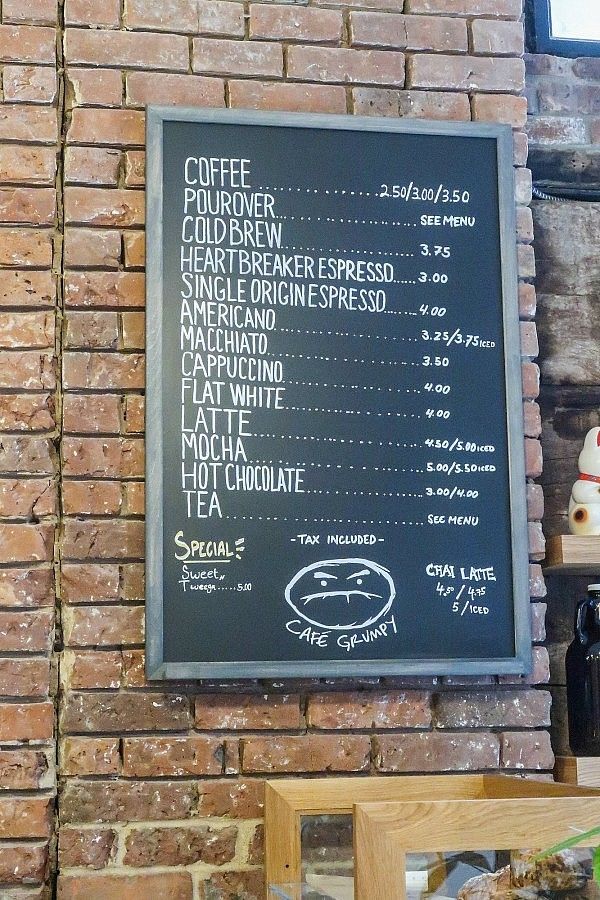 COFFEE..................2.50/3.00/3.50
POUROVER..................SEE MENU
COLD BREW..................3.75
HEARTBREAKER ESPRESSO.....3.00
SINGLE ORIGIN ESPRESSO......4.00
AMERICANO..................3.25/3.75 ICED
MACCHIATO..................3.50
CAPPUCCINO..................4.00
FLAT WHITE..................4.00
LATTE..................4.50/5.00 ICED
MOCHA..................5.00/5.50 ICED
HOT CHOCOLATE..................3.00/4.00
TEA..................SEE MENU
-TAX INCLUDED-
SPECIAL
Sweet n
Tweega.....5.00
CAFÉ GRUMPY
CHAI LATTE
4.50/4.75
5/ICED